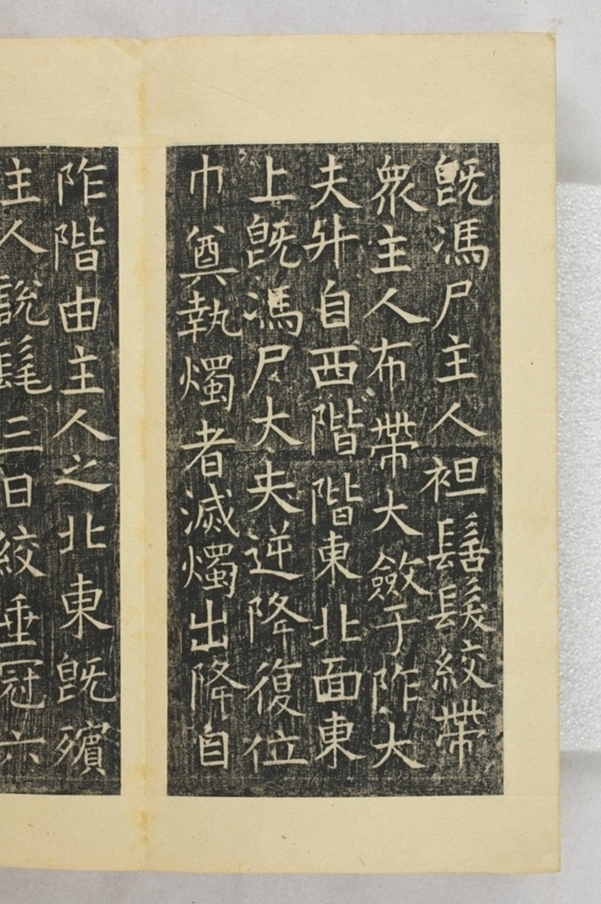 既馮尸主人袒髺髮絞帶
衆主人布帶大斂于阼大
夫升自西階階東北面東
上既馮尸大夫逆降復位
巾奠執燭者滅燭出降自
阼階由主人之北東既殯
主人說髦三日絞垂冠六